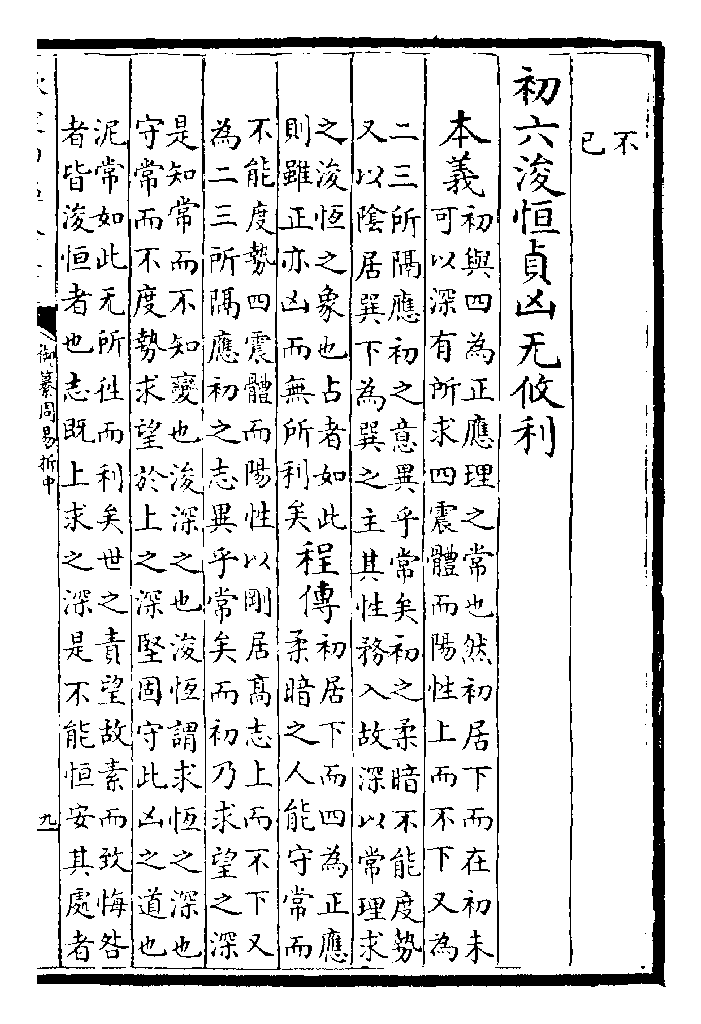 不
已
初六浚恒貞凶无攸利
本義初與四為正應理之常也然初居下而在初未
可以深有所求四震體而陽性上而不下又為
二三所隔應初之意異乎常矣初之柔暗不能度勢
又以陰居巽下為巽之主其性務入故深以常理求
之浚恆之象也占者如此
則雖正亦凶而無所利矣
程傳初居下而四為正應
柔暗之人能守常而
不能度勢四震體而陽性以剛居髙志上而不下又
為二三所隔應初之志異乎常矣而初乃求望之深
是知常而不知變也浚深之也浚恆謂求恆之深也
守常而不度勢求望於上之深堅固守此凶之道也
泥常如此无所往而利矣世之責望故素而致悔咎
者皆浚恒者也志既上求之深是不能恒安其處者
御纂周易折中
九